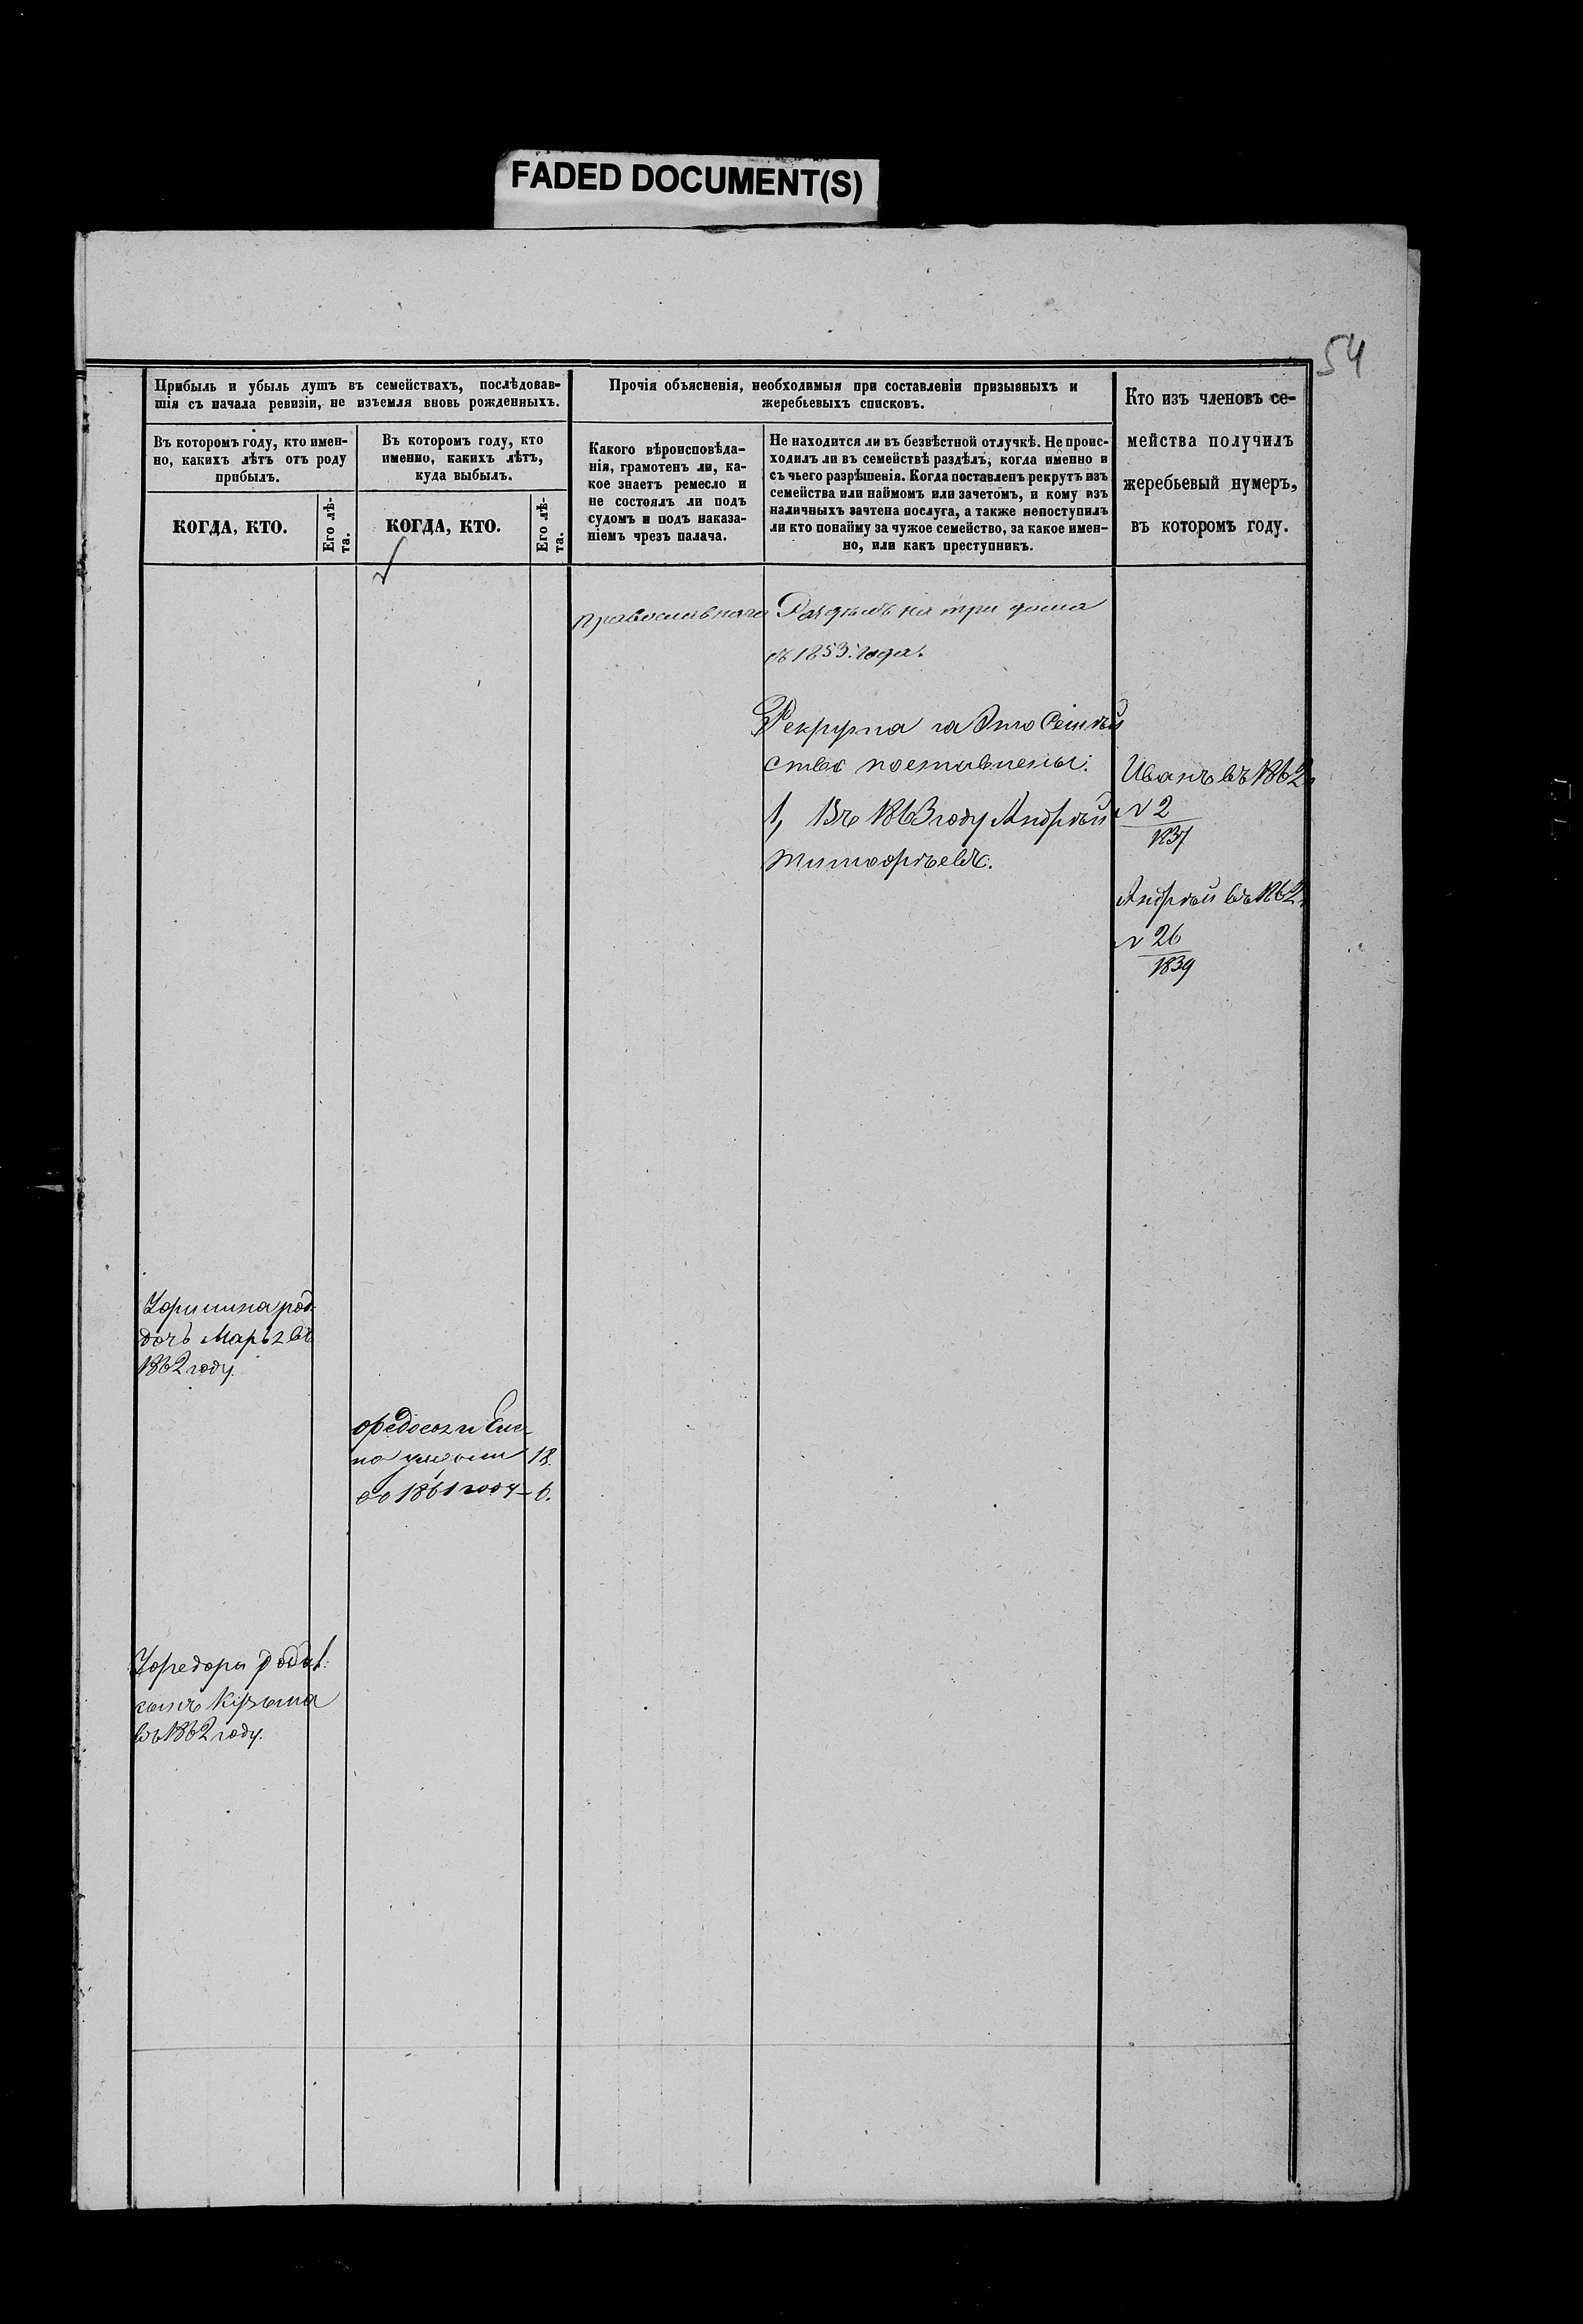 FADED DOCUMENT(S)
54
Прибыль и убыль душъ въ семействахъ, послѣдовав-
шія съ начала ревизіи, не изъемля вновь рожденныхъ.
Въ которомъ году, кто имен-
но, какихъ лѣтъ отъ роду
прибылъ.
КОГДА, КТО.
Его лѣ-
та.
Въ которомъ году, кто
именно, какихъ лѣтъ,
куда выбылъ.
КОГДА, КТО.
Его лѣ-
та.
Прочія объясненія, необходимыя при составленіи призывныхъ и
жеребьевыхъ списковъ.
Какого вѣроисповѣда-
нія, грамотенъ ли, ка-
кое знаетъ ремесло и
не состоялъ ли подъ
судомъ и подъ наказа-
ніемъ чрезъ палача.
Не находится ли въ безвѣстной отлучкѣ. Не проис-
ходилъ ли въ семействѣ раздѣлъ, когда именно и
съ чьего разрѣшенія. Когда поставленъ рекрутъ изъ
семейства или наймомъ или зачетомъ, и кому изъ
наличныхъ зачтена послуга, а также непоступилъ
ли кто понайму за чужое семейство, за какое имен-
но, или какъ преступникъ.
Кто изъ членовъ се-
мейства получилъ
жеребьевый нумеръ,
въ которомъ году.
православнаго
Раздѣлъ на три дома
съ 1853 года.
Рекрута за это Семѣй
ство поставлены:
1, Въ 1863 году Андрѣй
Тимофѣевъ.
Иванъ въ 1862
№ 2
1837
Андрѣй въ 1862
№ 26
1839
род.
дочь Марья въ
1862 году.
Федосья и Еле
на умерли 18.
въ 1861 году - 6.
У Федора родил.
сынъ Кузьма
въ 1862 году.